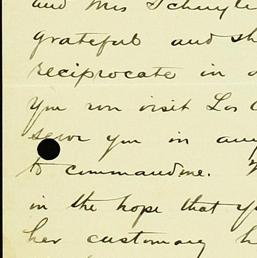 and Mrs Schuyle
grateful and sh
reciprocate in a
you run visit Los
serve you in any
to commandme.
in the hope that y
her customary h